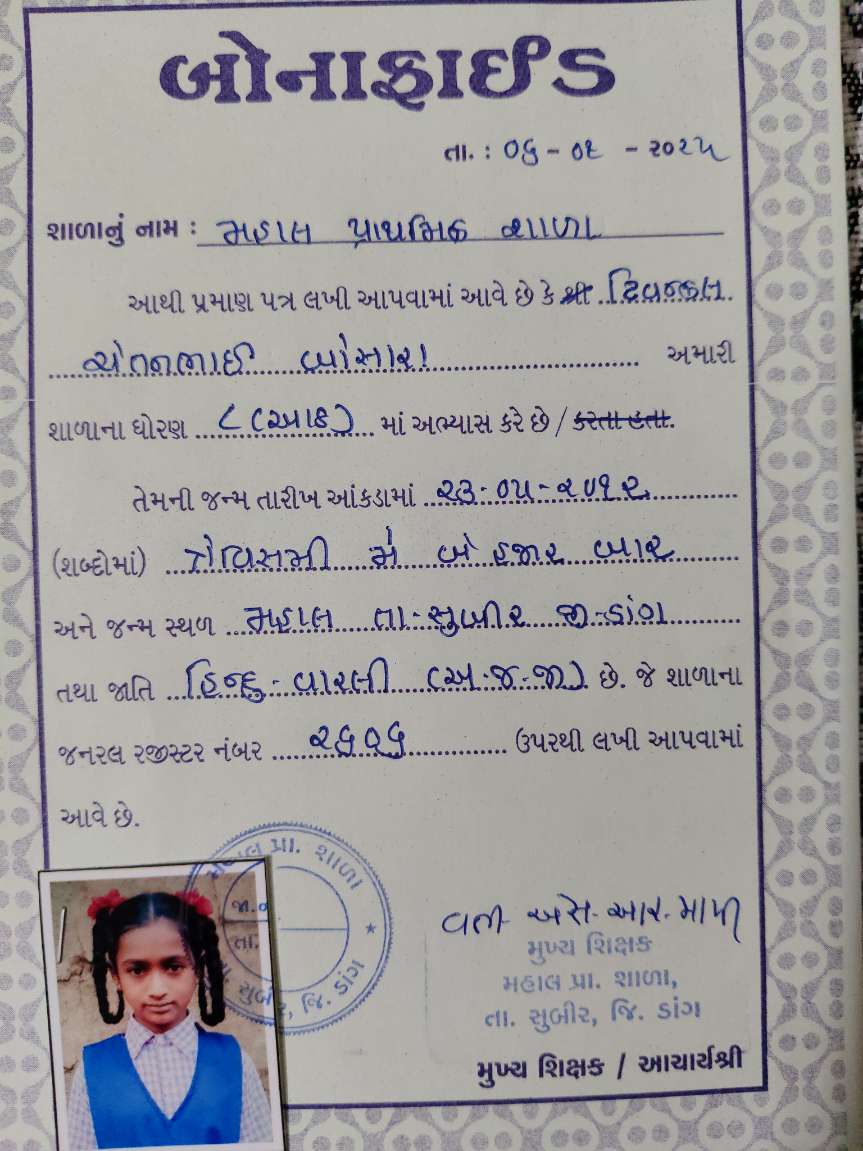 બોનાફાઈડ
તા. : ૦૬ - ૦૬ - ૨૦૨૫
શાળાનું નામ : મહાલ પ્રાથમિક શાળા
આથી પ્રમાણ પત્ર લખી આપવામાં આવે છે કે શ્રી
ચેતનભાઈ બાંસારા અમારી
શાળાના ધોરણ ૮ (આઠ) માં અભ્યાસ કરે છે / કરતા હતા.
તેમની જન્મ તારીખ આંકડામાં ૨૩-૦૫-૨૦૧૨
(શબ્દોમાં) ત્રેવિસમી મે બે હજાર બાર
અને જન્મ સ્થળ મહાલ તા-સુબીર જી-ડાંગ
તથા જાતિ હિન્દુ-વારલી (અ.જ.જા) છે. જે શાળાના
જનરલ રજીસ્ટર નંબર ૨૬૦૬ ઉપરથી લખી આપવામાં
આવે છે.
પ્રા. શાળા
જા.
તા.
સુબીર, જિ. ડાંગ
વતી એસ.આર.માપી
મુખ્ય શિક્ષક
મહાલ પ્રા. શાળા,
તા. સુબીર, જિ. ડાંગ
મુખ્ય શિક્ષક / આચાર્યશ્રી